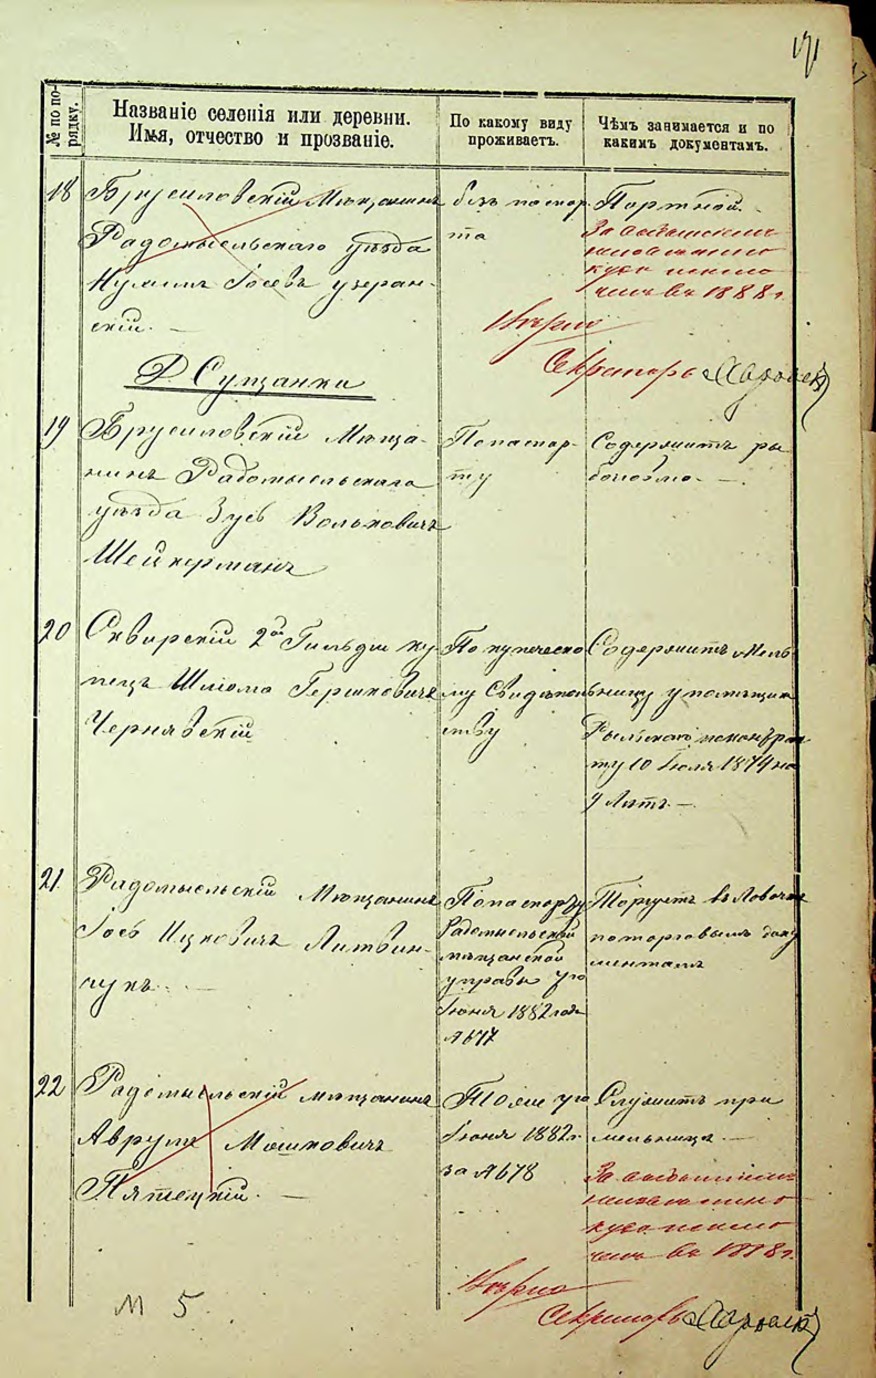 171
№ по по-
рядку.
Названіе селенія или деревни.
Имя, отчество и прозваніе.
По какому виду
проживаетъ.
Чѣмъ занимается и по
какимъ документамъ.
18
Брусиловскій Мѣщанинъ
Радомысльскаго уѣзда
Іосевъ узеран-
скій. —
безъ паспор-
та
Портной.
За
исключ
ченъ въ 1888 г.
Вѣрно
Секретарь
Д. Сущанки
19
Брусиловскій Мѣща-
нинъ Радомысльскаго
уѣзда Зусь Вольковичъ
Шейнерманъ
По паспор-
ту
Содержитъ ры
20
Сквирскій 2ой Гильдіи ку-
пецъ Шліома Гершковичъ
Чернявскій
По купеческо
му Свидѣтель
ству
Содержитъ Мель
ницу у помѣщик
по контрак
ту 10 Іюля 1874 на
9 Лѣтъ. —
21.
Радомысльскій Мѣщанинъ
Іось Ицковичъ Литвин-
чукъ. —
По паспорту
Радомысльской
мѣщанской
управы 7го
Іюня 1882 года
№ 677
Торгуетъ въ Лавочкѣ
по торговымъ доку
ментамъ
22
Радомысльскій мѣщанинъ
Аврумъ Мошковичъ
Пятецкій. —
Тоже 7го
Іюня 1882 г.
за № 678
Служитъ при
мельницѣ. —
За
исключ
ченъ въ 1888 г.
Вѣрно
Секретарь
М 5